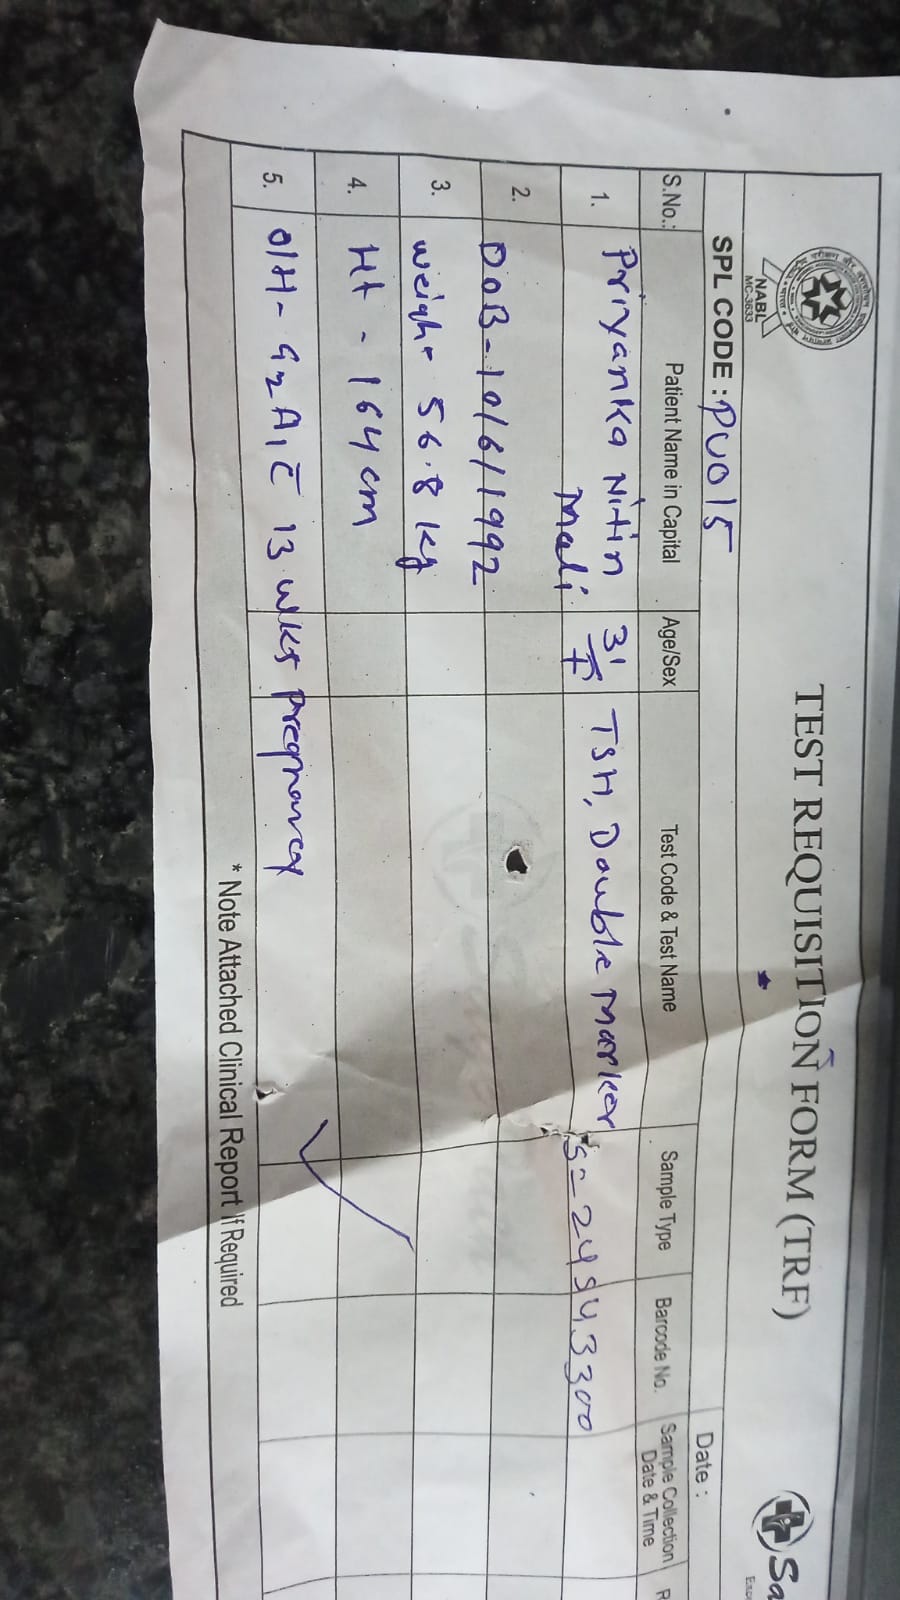 TEST REQUISITION FORM (TRF)
Sa
NABL
MC-3633
SPL CODE : PU015
Date :
S.No.: Patient Name in Capital Age/Sex Test Code & Test Name Sample Type Barcode No. Sample Collection Date & Time R
1. Priyanka Nitin Mali 31/F TSH, Double Marker S- 24543300
2. DOB-10/6/1992
3. weight 56.8 kg
4. Ht - 164 cm
5. O/H- G2A1 c̄ 13 wks pregnancy
* Note Attached Clinical Report If Required